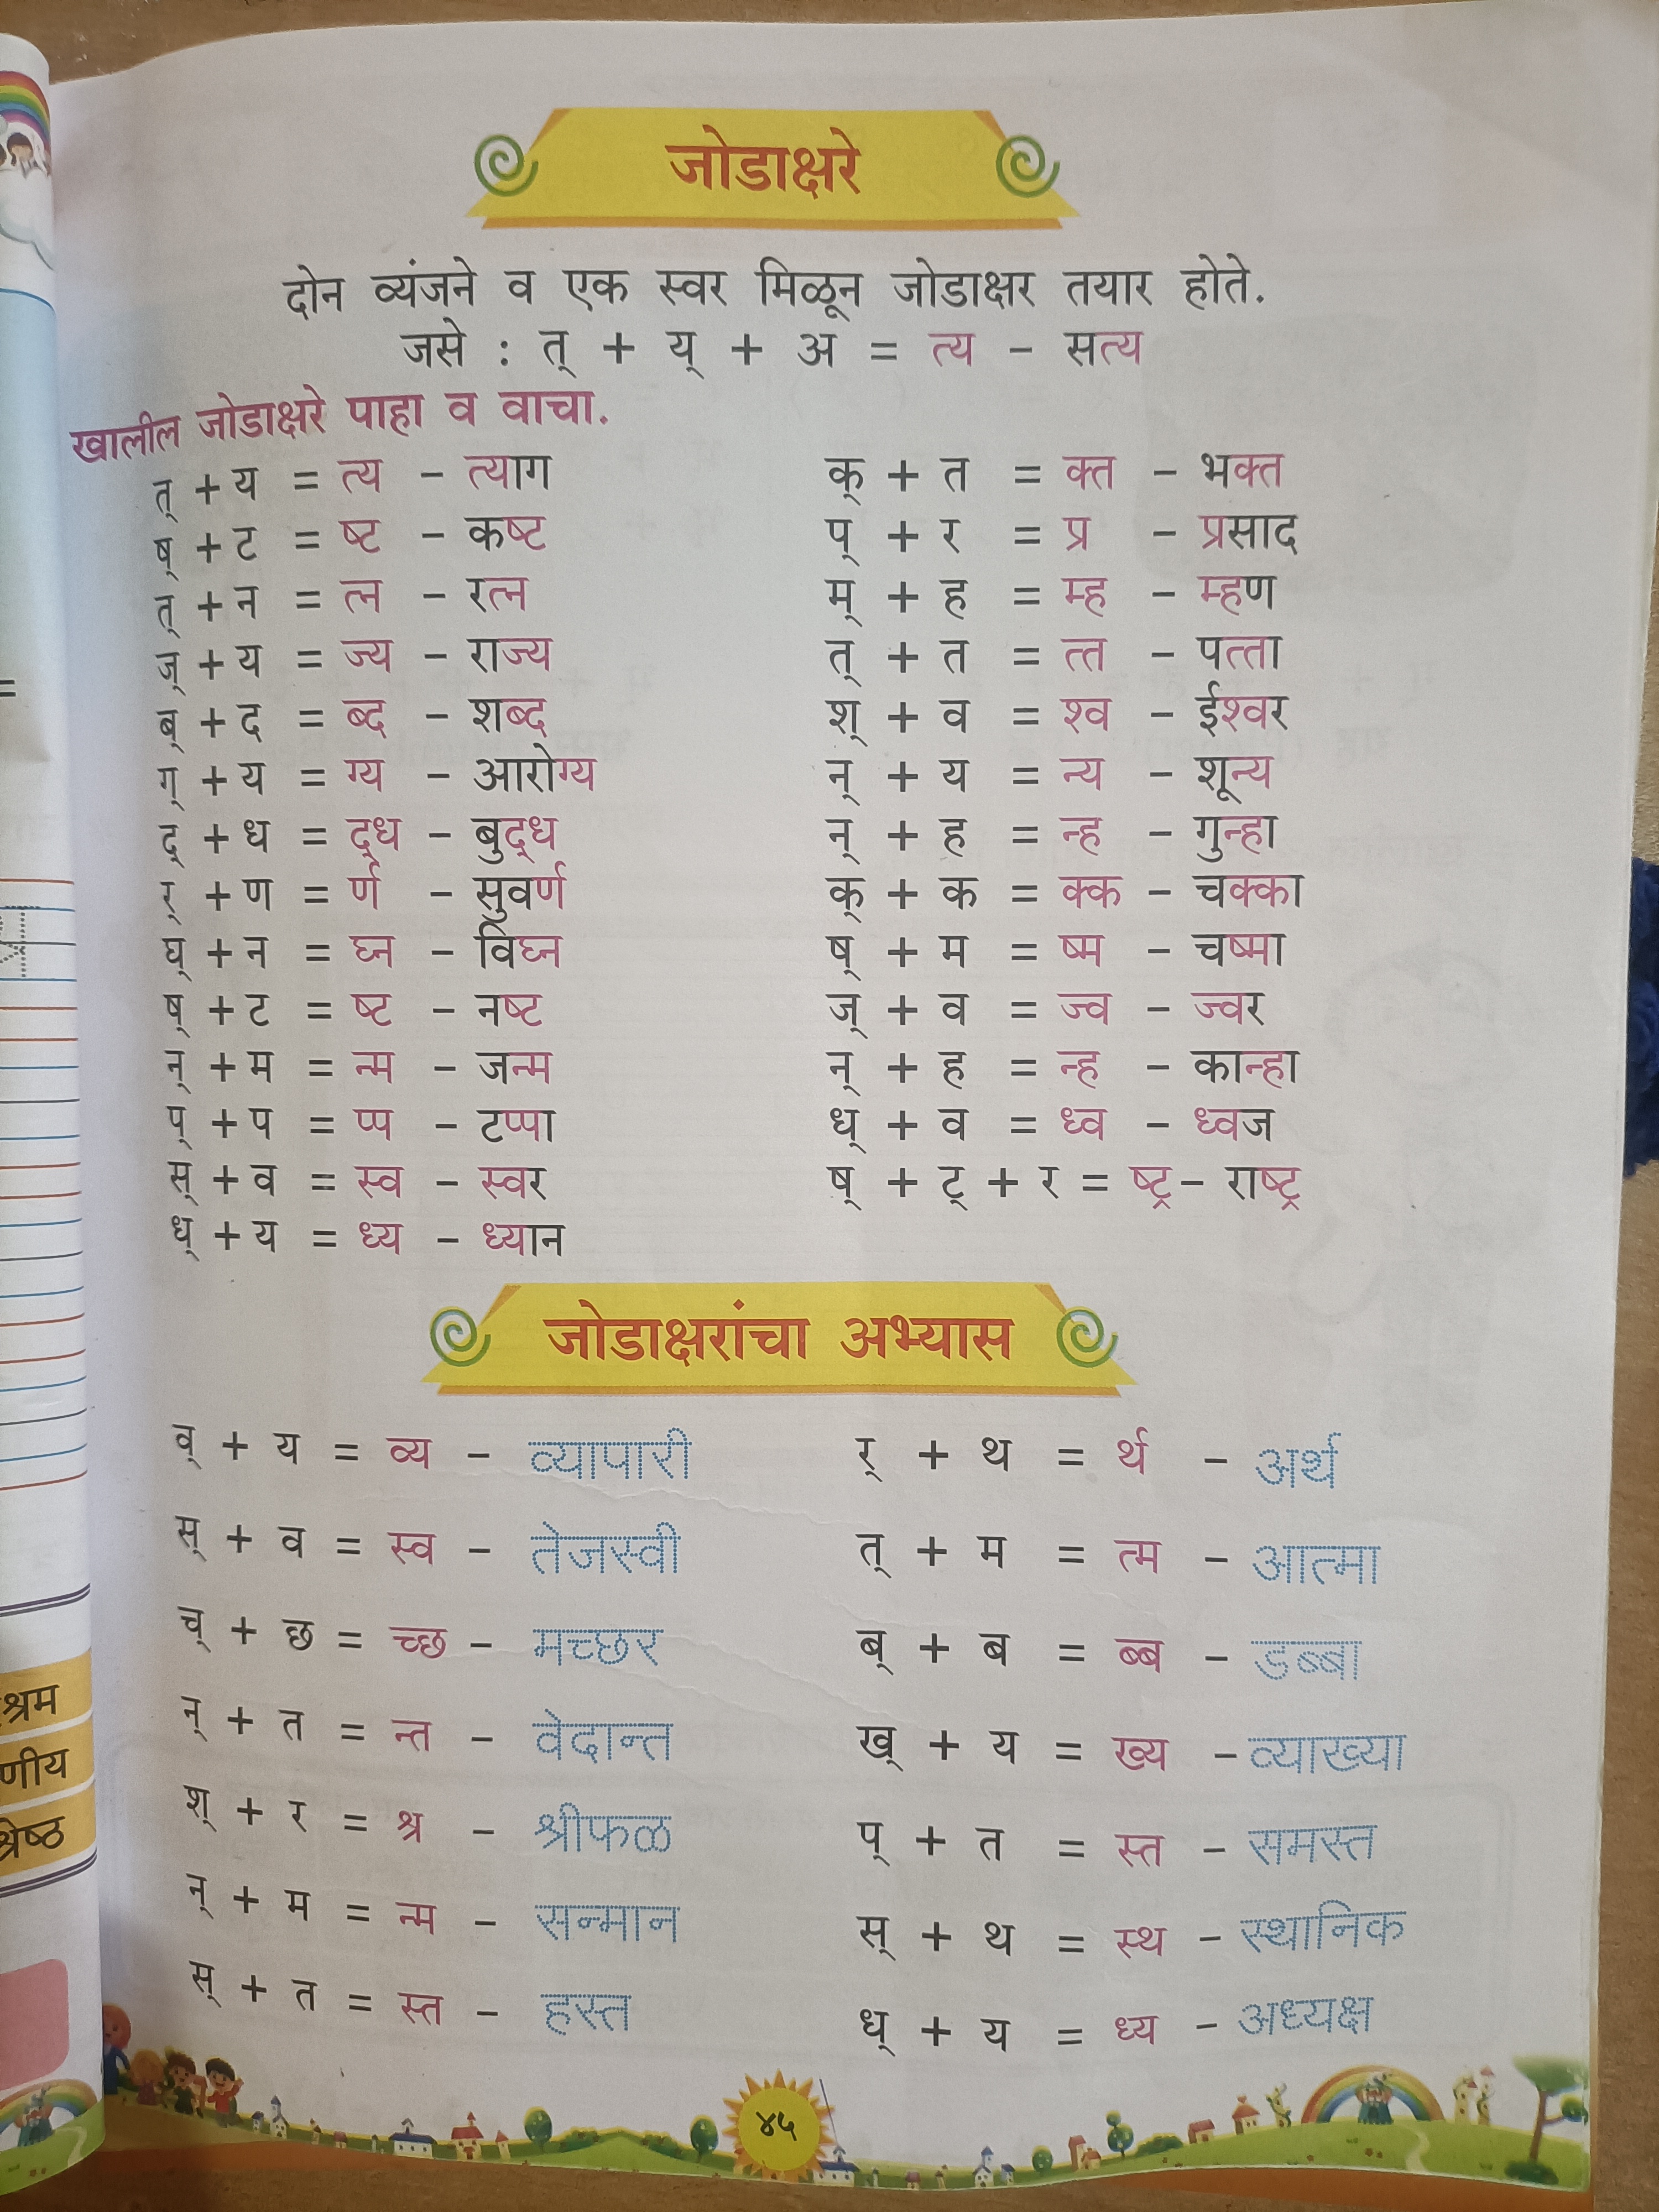 जोडाक्षरे
दोन व्यंजने व एक स्वर मिळून जोडाक्षर तयार होते.
जसे : त् + य् + अ = त्य – सत्य
खालील जोडाक्षरे पाहा व वाचा.
त् + य = त्य – त्याग
ष् + ट = ष्ट – कष्ट
त् + न = त्न – रत्न
ज् + य = ज्य – राज्य
ब् + द = ब्द – शब्द
ग् + य = ग्य – आरोग्य
द् + ध = द्ध – बुद्ध
र् + ण = र्ण – सुवर्ण
घ् + न = घ्न – विघ्न
ष् + ट = ष्ट – नष्ट
न् + म = न्म – जन्म
प् + प = प्प – टप्पा
स् + व = स्व – स्वर
ध् + य = ध्य – ध्यान
क् + त = क्त – भक्त
प् + र = प्र – प्रसाद
म् + ह = म्ह – म्हण
त् + त = त्त – पत्ता
श् + व = श्व – ईश्वर
न् + य = न्य – शून्य
न् + ह = न्ह – गुन्हा
क् + क = क्क – चक्का
ष् + म = ष्म – चष्मा
ज् + व = ज्व – ज्वर
न् + ह = न्ह – कान्हा
ध् + व = ध्व – ध्वज
ष् + ट् + र = ष्ट्र – राष्ट्र
जोडाक्षरांचा अभ्यास
व् + य = व्य – व्यापारी
स् + व = स्व – तेजस्वी
च् + छ = च्छ – मच्छर
न् + त = न्त – वेदान्त
श् + र = श्र – श्रीफळ
न् + म = न्म – सन्मान
स् + त = स्त – हस्त
र् + थ = र्थ – अर्थ
त् + म = त्म – आत्मा
ब् + ब = ब्ब – डब्बा
ख् + य = ख्य – व्याख्या
प् + त = स्त – समस्त
स् + थ = स्थ – स्थानिक
ध् + य = ध्य – अध्यक्ष
४५
श्रम
णीय
श्रेष्ठ